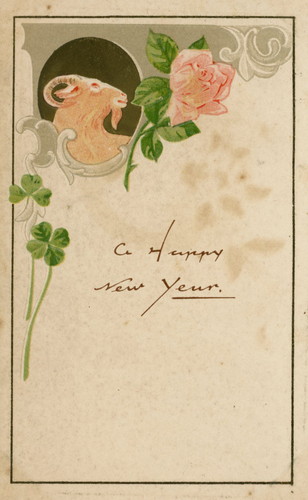 A Happy
New Year.